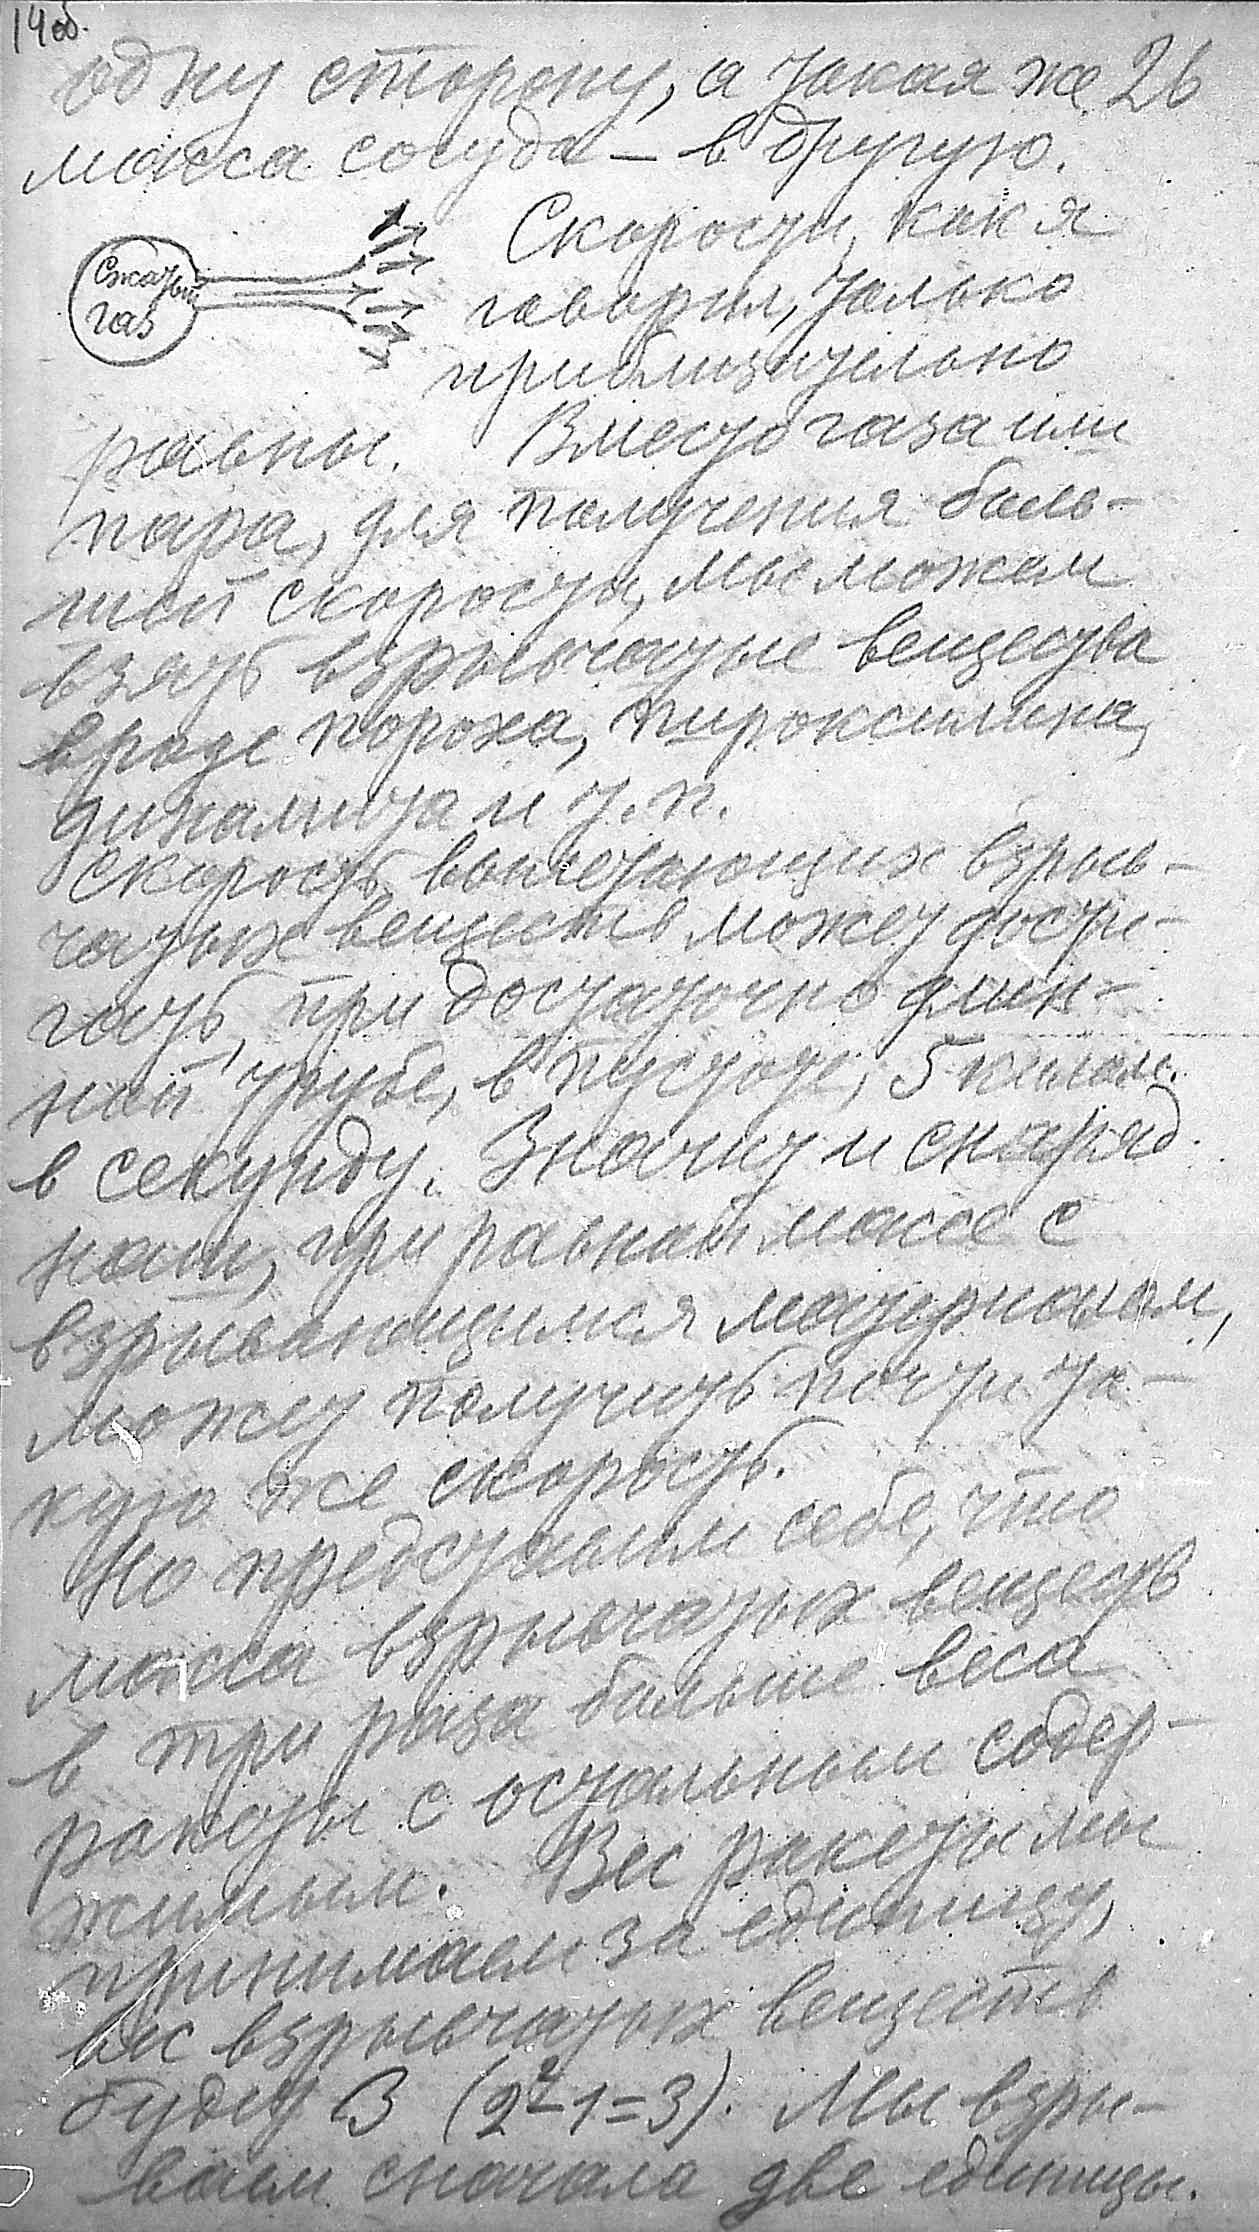 14 об.
одну сторону, а такая же 26
масса сосуда – в другую.
Скорости, как я
Сжатый
газ
говорил, только
приблизительно
равны. Вместо газа или
пара, для получения боль-
шей скорости, мы можем
взять взрывчатые вещества
вроде пороха, пироксилина,
динамита и т.п.
Скорость вылетающих взрыв-
чатых веществ может дости-
гать, при достаточно длин-
ной трубе, в пустоте, 5 килом.
в секунду. Значит и снаряд
наш, при равной массе с
взрывающимся материалом,
может получить почти та-
кую же скорость.
Но представим себе, что
масса взрывчатых веществ
в три раза больше веса
ракеты с остальным содер-
жимым. Вес ракеты мы
принимаем за единицу,
вес взрывчатых веществ
будет 3 (2²-1=3). Мы взры-
ваем сначала две единицы.